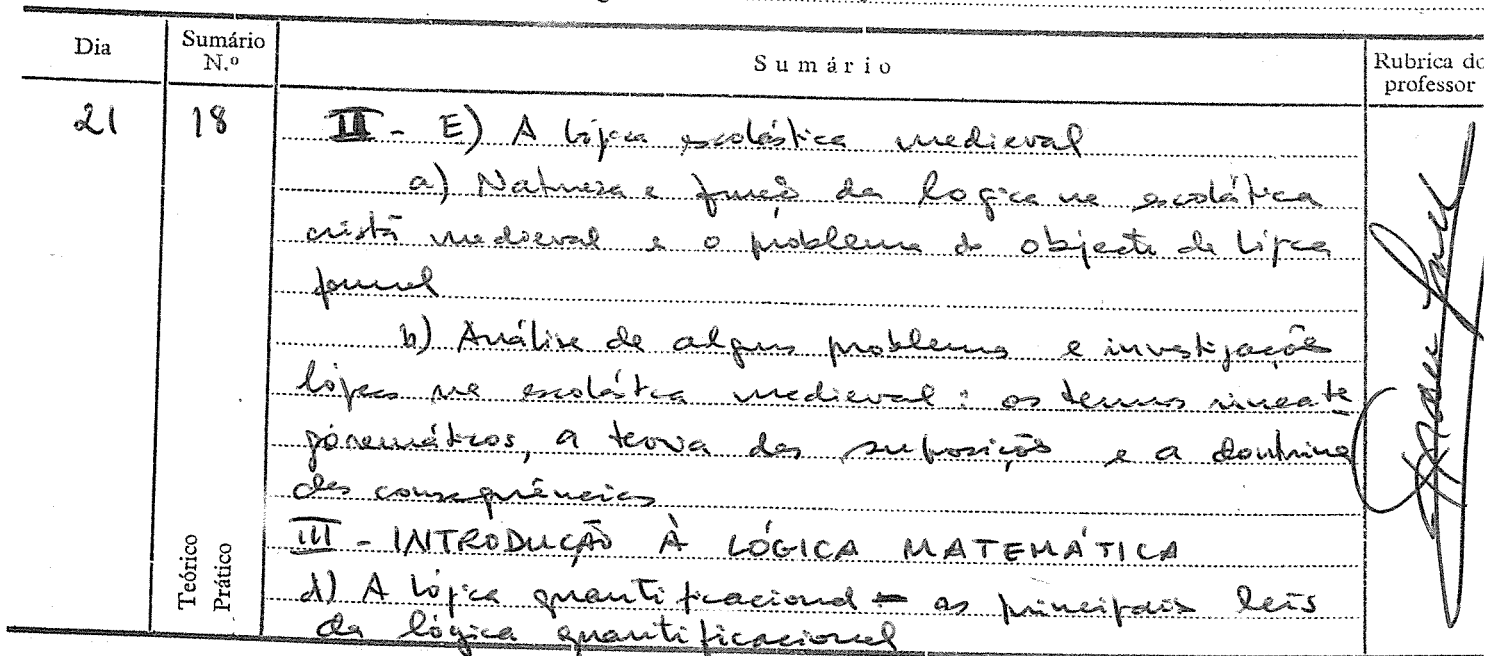 Dia
Sumário N.º
Sumário
Rubrica do professor
21
18
II - E) A lógica escolástica medieval
a) Natureza e função da lógica na escolástica
cristã medieval e o problema do objecto da lógica
formal
b) Análise de alguns problemas e investigações
lógicas na escolástica medieval: os termos sincate
goremáticos, a teoria das suposições e a doutrina
das consequências
III - INTRODUÇÃO À LÓGICA MATEMÁTICA
d) A lógica quantificacional - as principais leis
da lógica quantificacional
Teórico
Prático